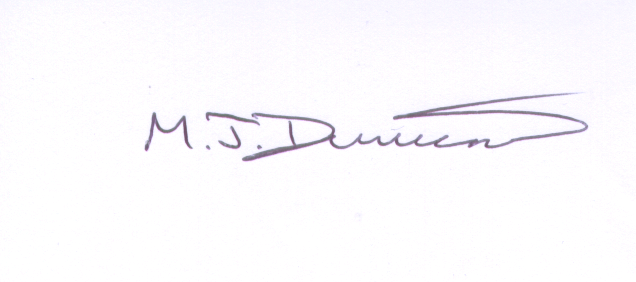 M. J. Duncan